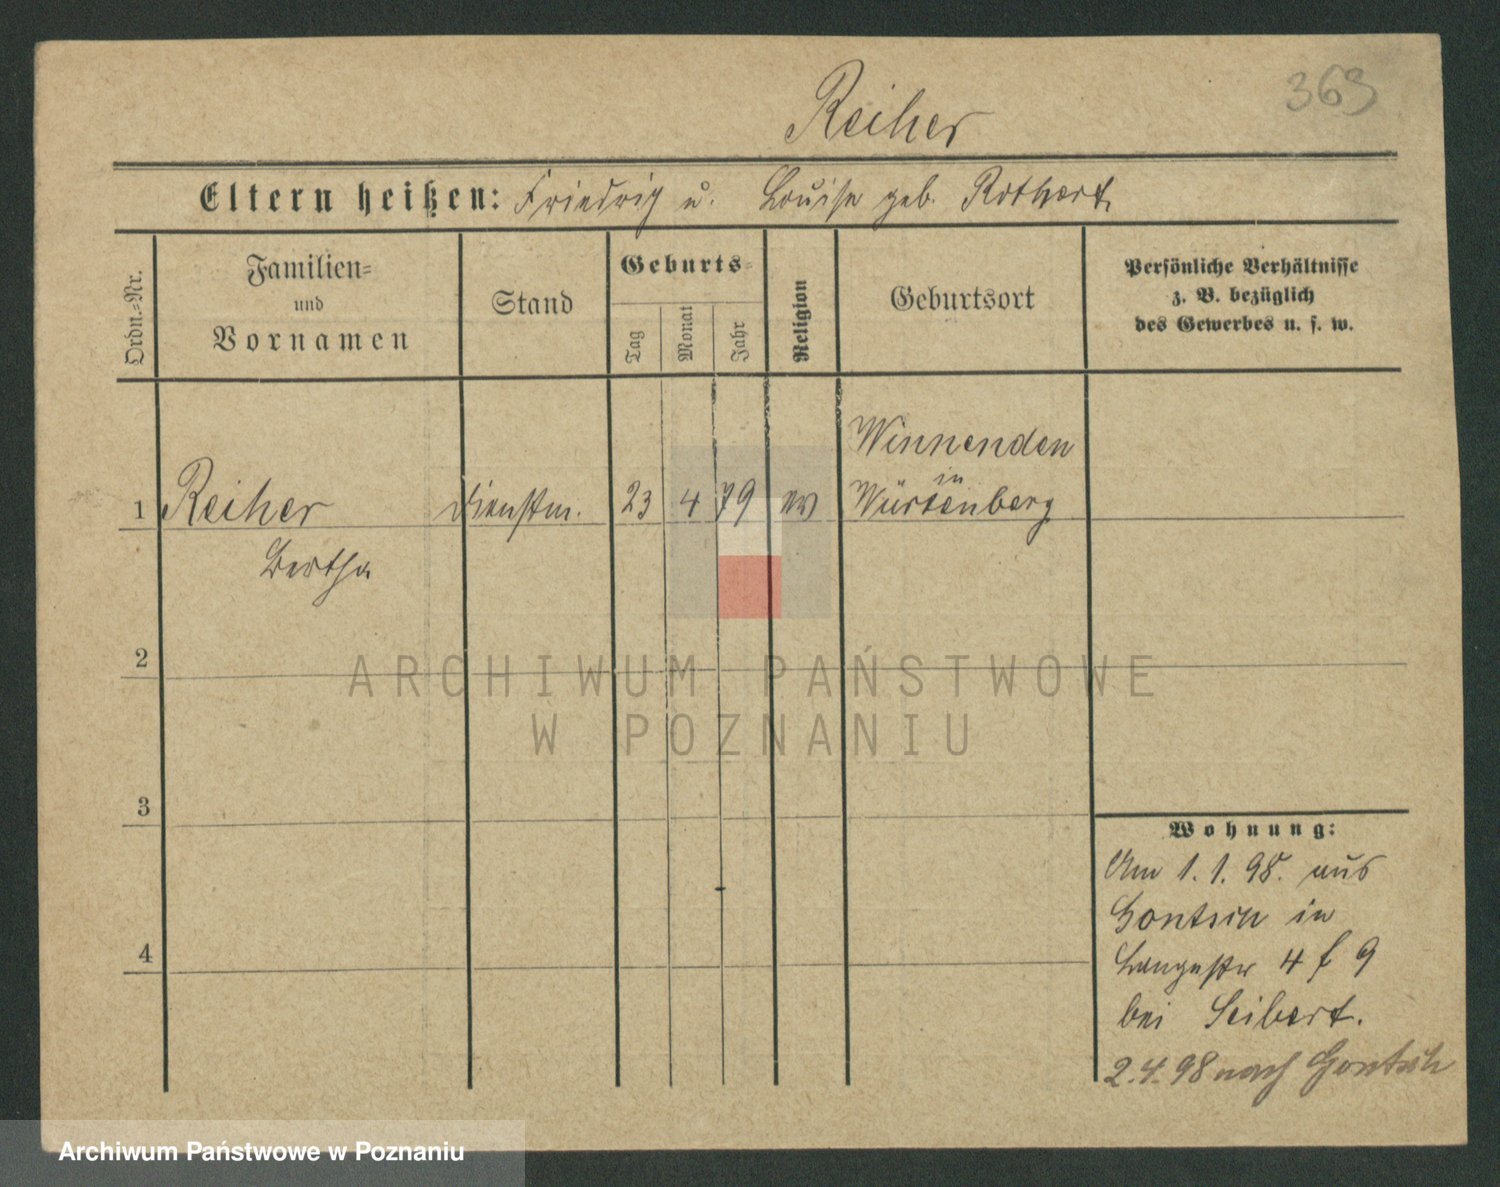 369
Reiher
Eltern heißen: Friedrich u. Louise geb. Rothert.
Ordn.=Nr.
Familien=
und
Vornamen
Stand
Geburts=
Tag
Monat
Jahr
Religion
Geburtsort
Persönliche Verhältnisse
z. B. bezüglich
des Gewerbes u. s. w.
1 Reiher Dienstm. 23 4 79 ev Winnenden
in
Würtenberg
Bertha
2
3
4
Wohnung:
Am 1. 1. 98. aus
Gontsch in
Langestr 4 f 9
bei Seibert.
2.4.98 nach Gontsch
ARCHIWUM PAŃSTWOWE
W POZNANIU
Archiwum Państwowe w Poznaniu